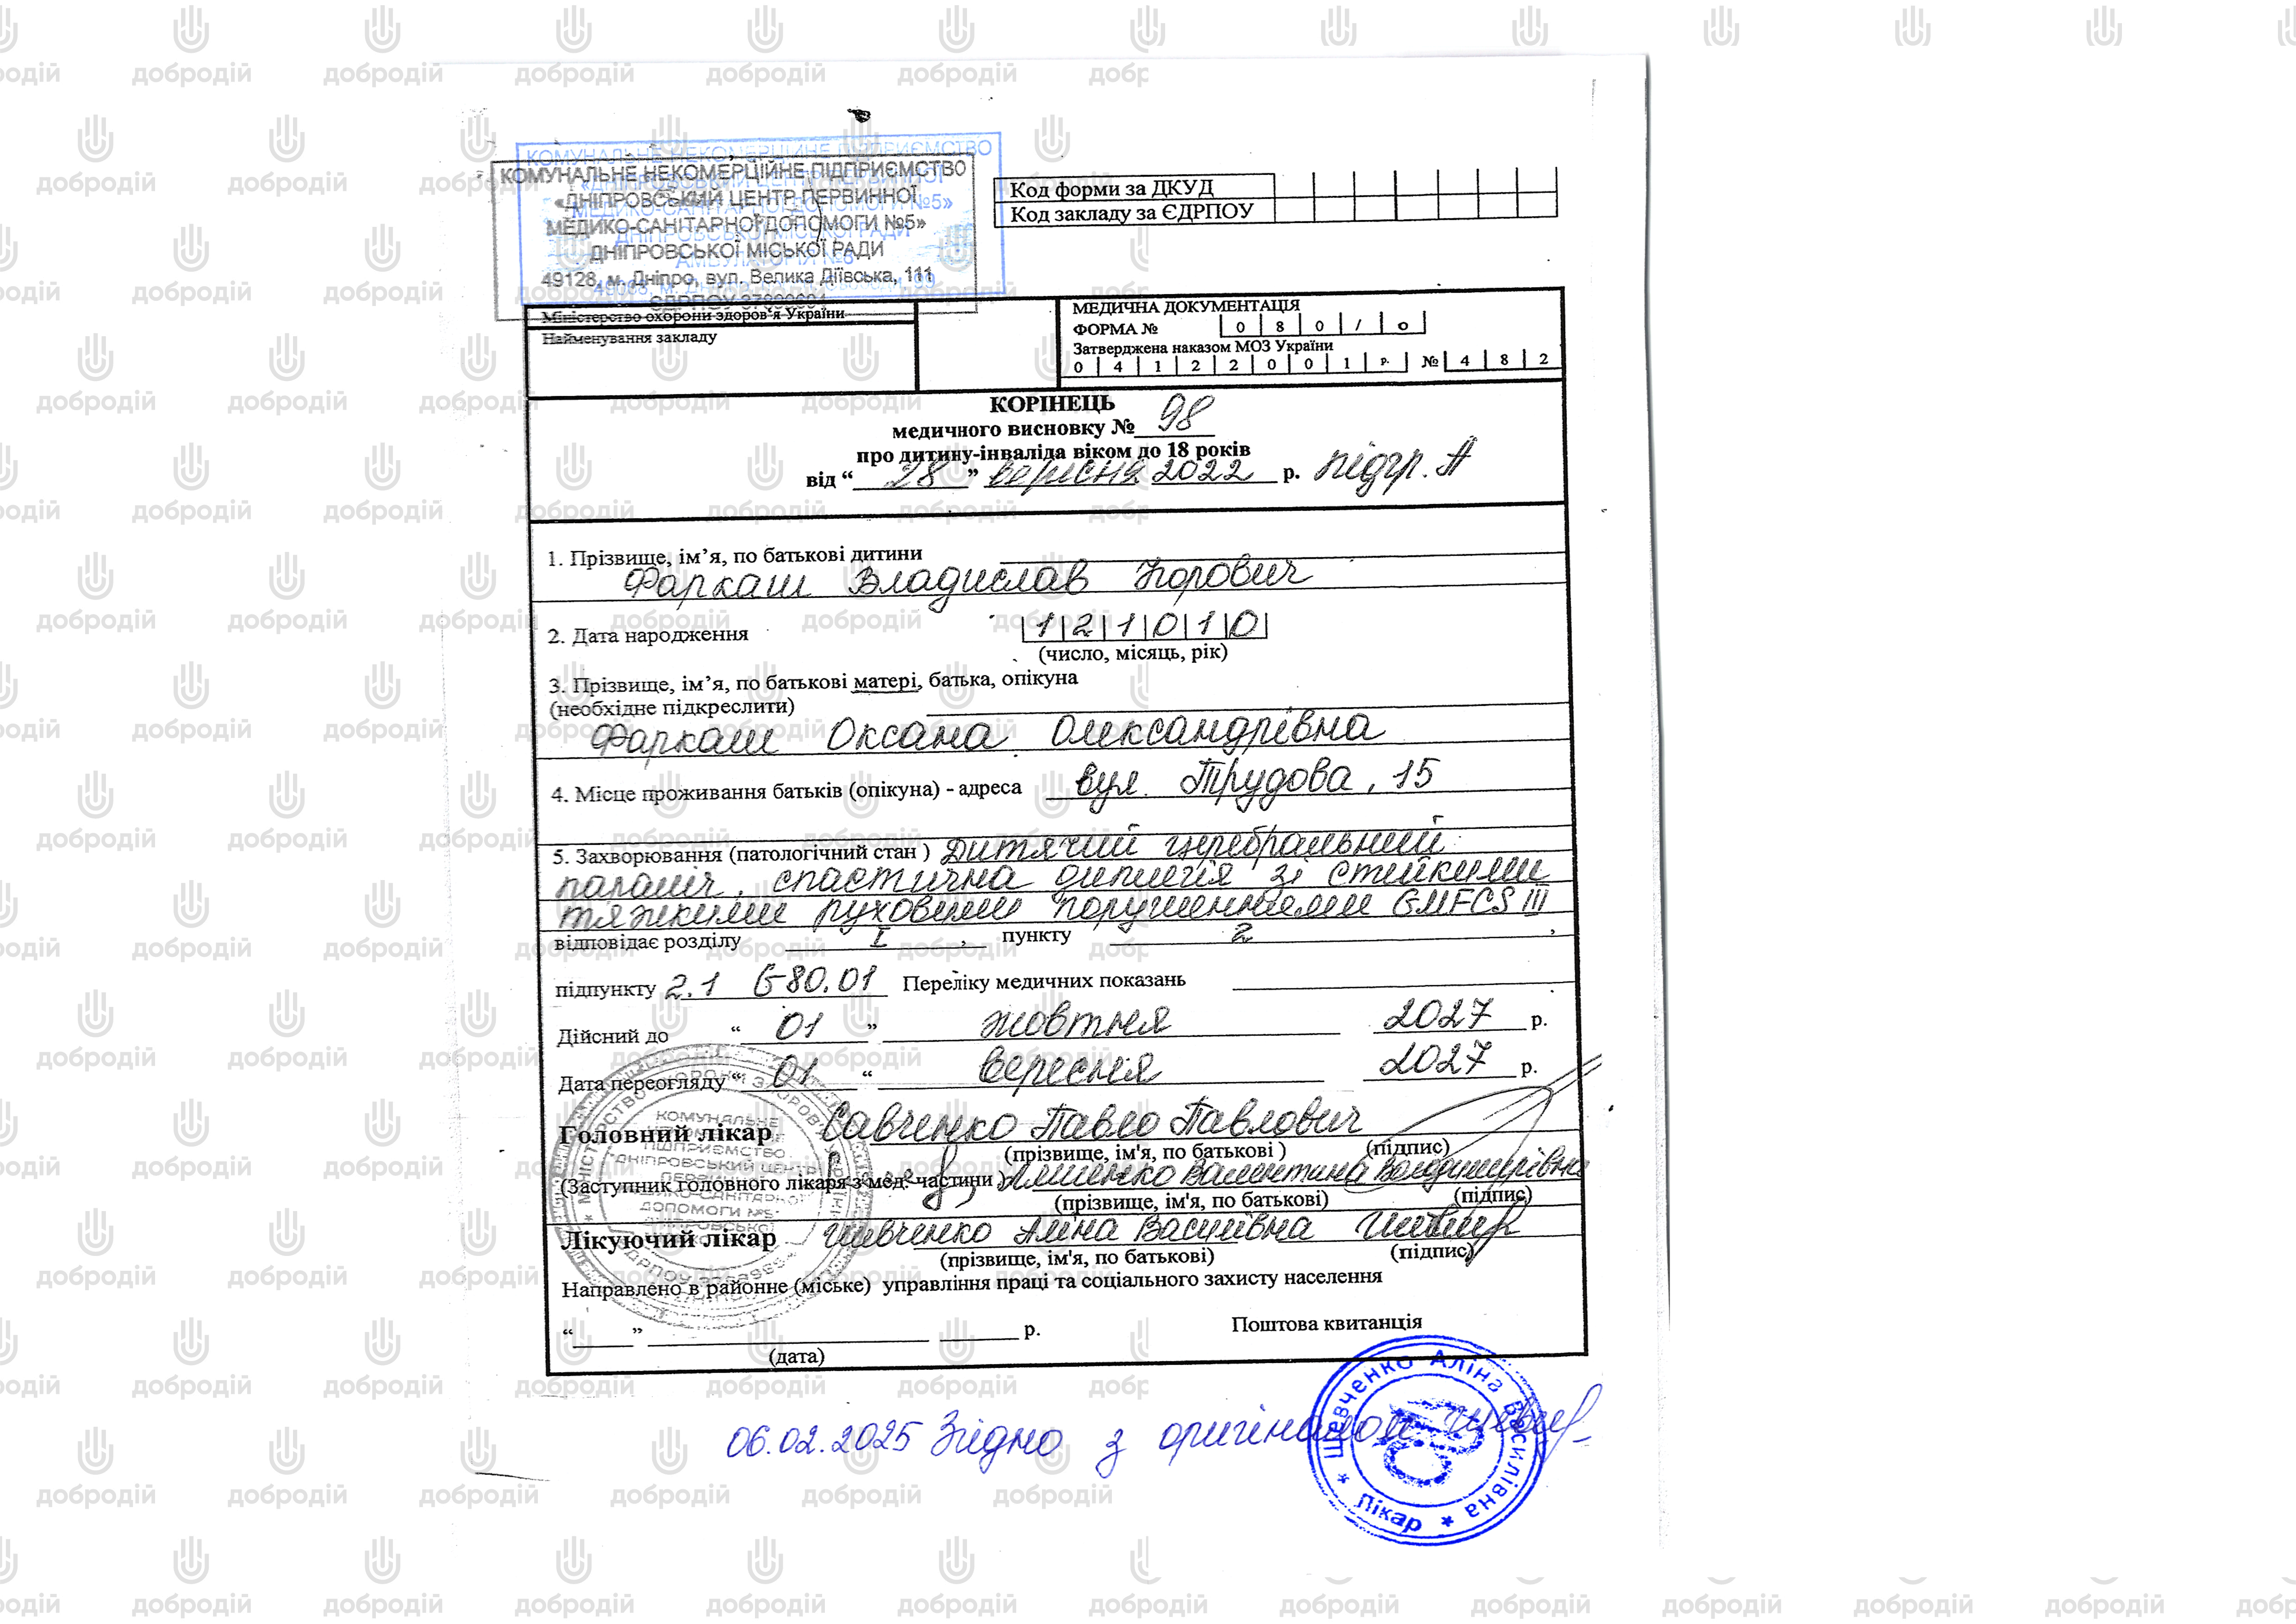 КОМУНАЛЬНЕ НЕКОМЕРЦІЙНЕ ПІДПРИЄМСТВО
«ДНІПРОВСЬКИЙ ЦЕНТР ПЕРВИННОЇ
МЕДИКО-САНІТАРНОЇ ДОПОМОГИ №5»
ДНІПРОВСЬКОЇ МІСЬКОЇ РАДИ
49128, м. Дніпро, вул. Велика Діївська, 111
Код форми за ДКУД
Код закладу за ЄДРПОУ
Міністерство охорони здоров'я України
Найменування закладу
МЕДИЧНА ДОКУМЕНТАЦІЯ
ФОРМА № 0 8 0 / о
Затверджена наказом МОЗ України
0 4 1 2 2 0 0 1 р. № 4 8 2
КОРІНЕЦЬ
медичного висновку № 98
про дитину-інваліда віком до 18 років
від “ 28 ” вересня 2022 р. підгр. А
1. Прізвище, ім’я, по батькові дитини
Фаркаш Владислав
2. Дата народження 1 2 1 0 1 0
(число, місяць, рік)
3. Прізвище, ім’я, по батькові матері, батька, опікуна
(необхідне підкреслити)
Фаркаш Оксана Олександрівна
4. Місце проживання батьків (опікуна) - адреса вул. Трудова, 15
5. Захворювання (патологічний стан ) Дитячий церебральний
параліч, спастична диплегія зі стійкими
тяжкими руховими порушеннями GMFCS III
відповідає розділу I , пункту 2 ,
підпункту 2.1 G80.01 Переліку медичних показань
Дійсний до “ 01 ” жовтня 2027 р.
Дата переогляду “ 01 “ вересня 2027 р.
Головний лікар Савченко Павло Павлович
(прізвище, ім'я, по батькові ) (підпис)
(Заступник головного лікаря з мед. частини ) Валентина Володимирівна
(прізвище, ім'я, по батькові) (підпис)
Лікуючий лікар Шевченко Аліна Василівна
(прізвище, ім'я, по батькові) (підпис)
Направлено в районне (міське) управління праці та соціального захисту населення
“ ” р. Поштова квитанція
(дата)
06.02.2025 Згідно з оригіналом
Шевченко Аліна Василівна * Лікар *
добродій